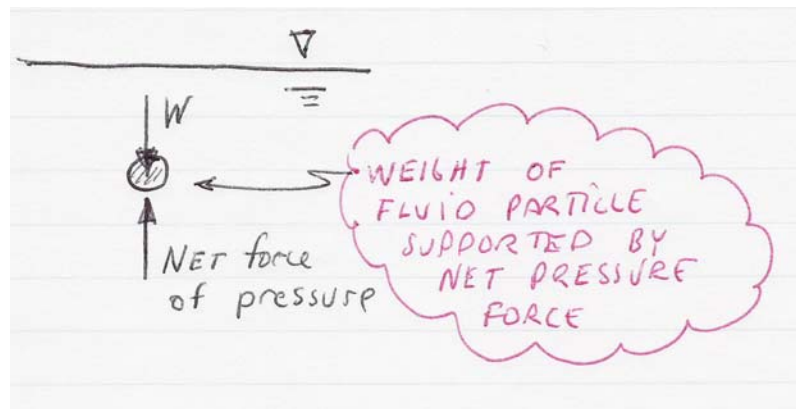 W
NET force
of pressure
WEIGHT OF
FLUID PARTICLE
SUPPORTED BY
NET PRESSURE
FORCE